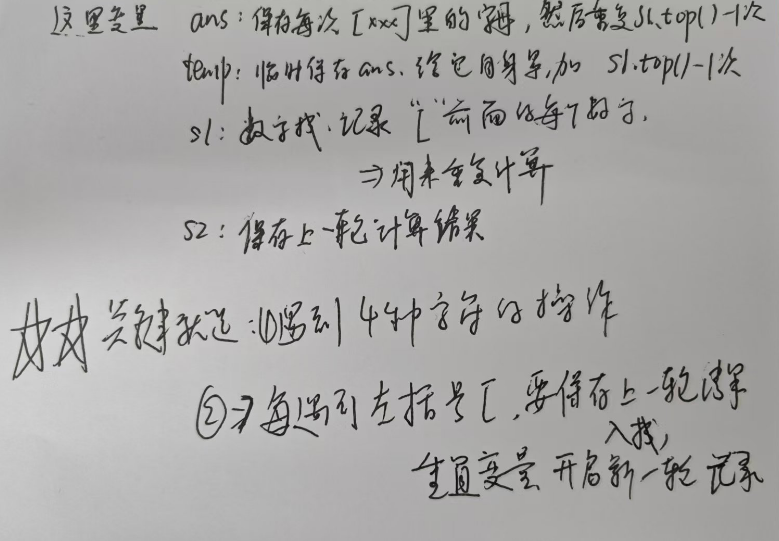 这里变量 ans：保存每次 [xxx] 里的字母，然后重复s1.top()-1次
temp：临时保存ans.给它自身累加 s1.top()-1次
s1：数字栈.记录“[”前面的每个数字.
⇒用来重复计算
s2：保存上一轮计算结果
☆☆关键就是：①遇到4种字符的操作
②⇒每遇到左括号[，要保存上一轮结果
入栈，
重置变量 开启新一轮记录